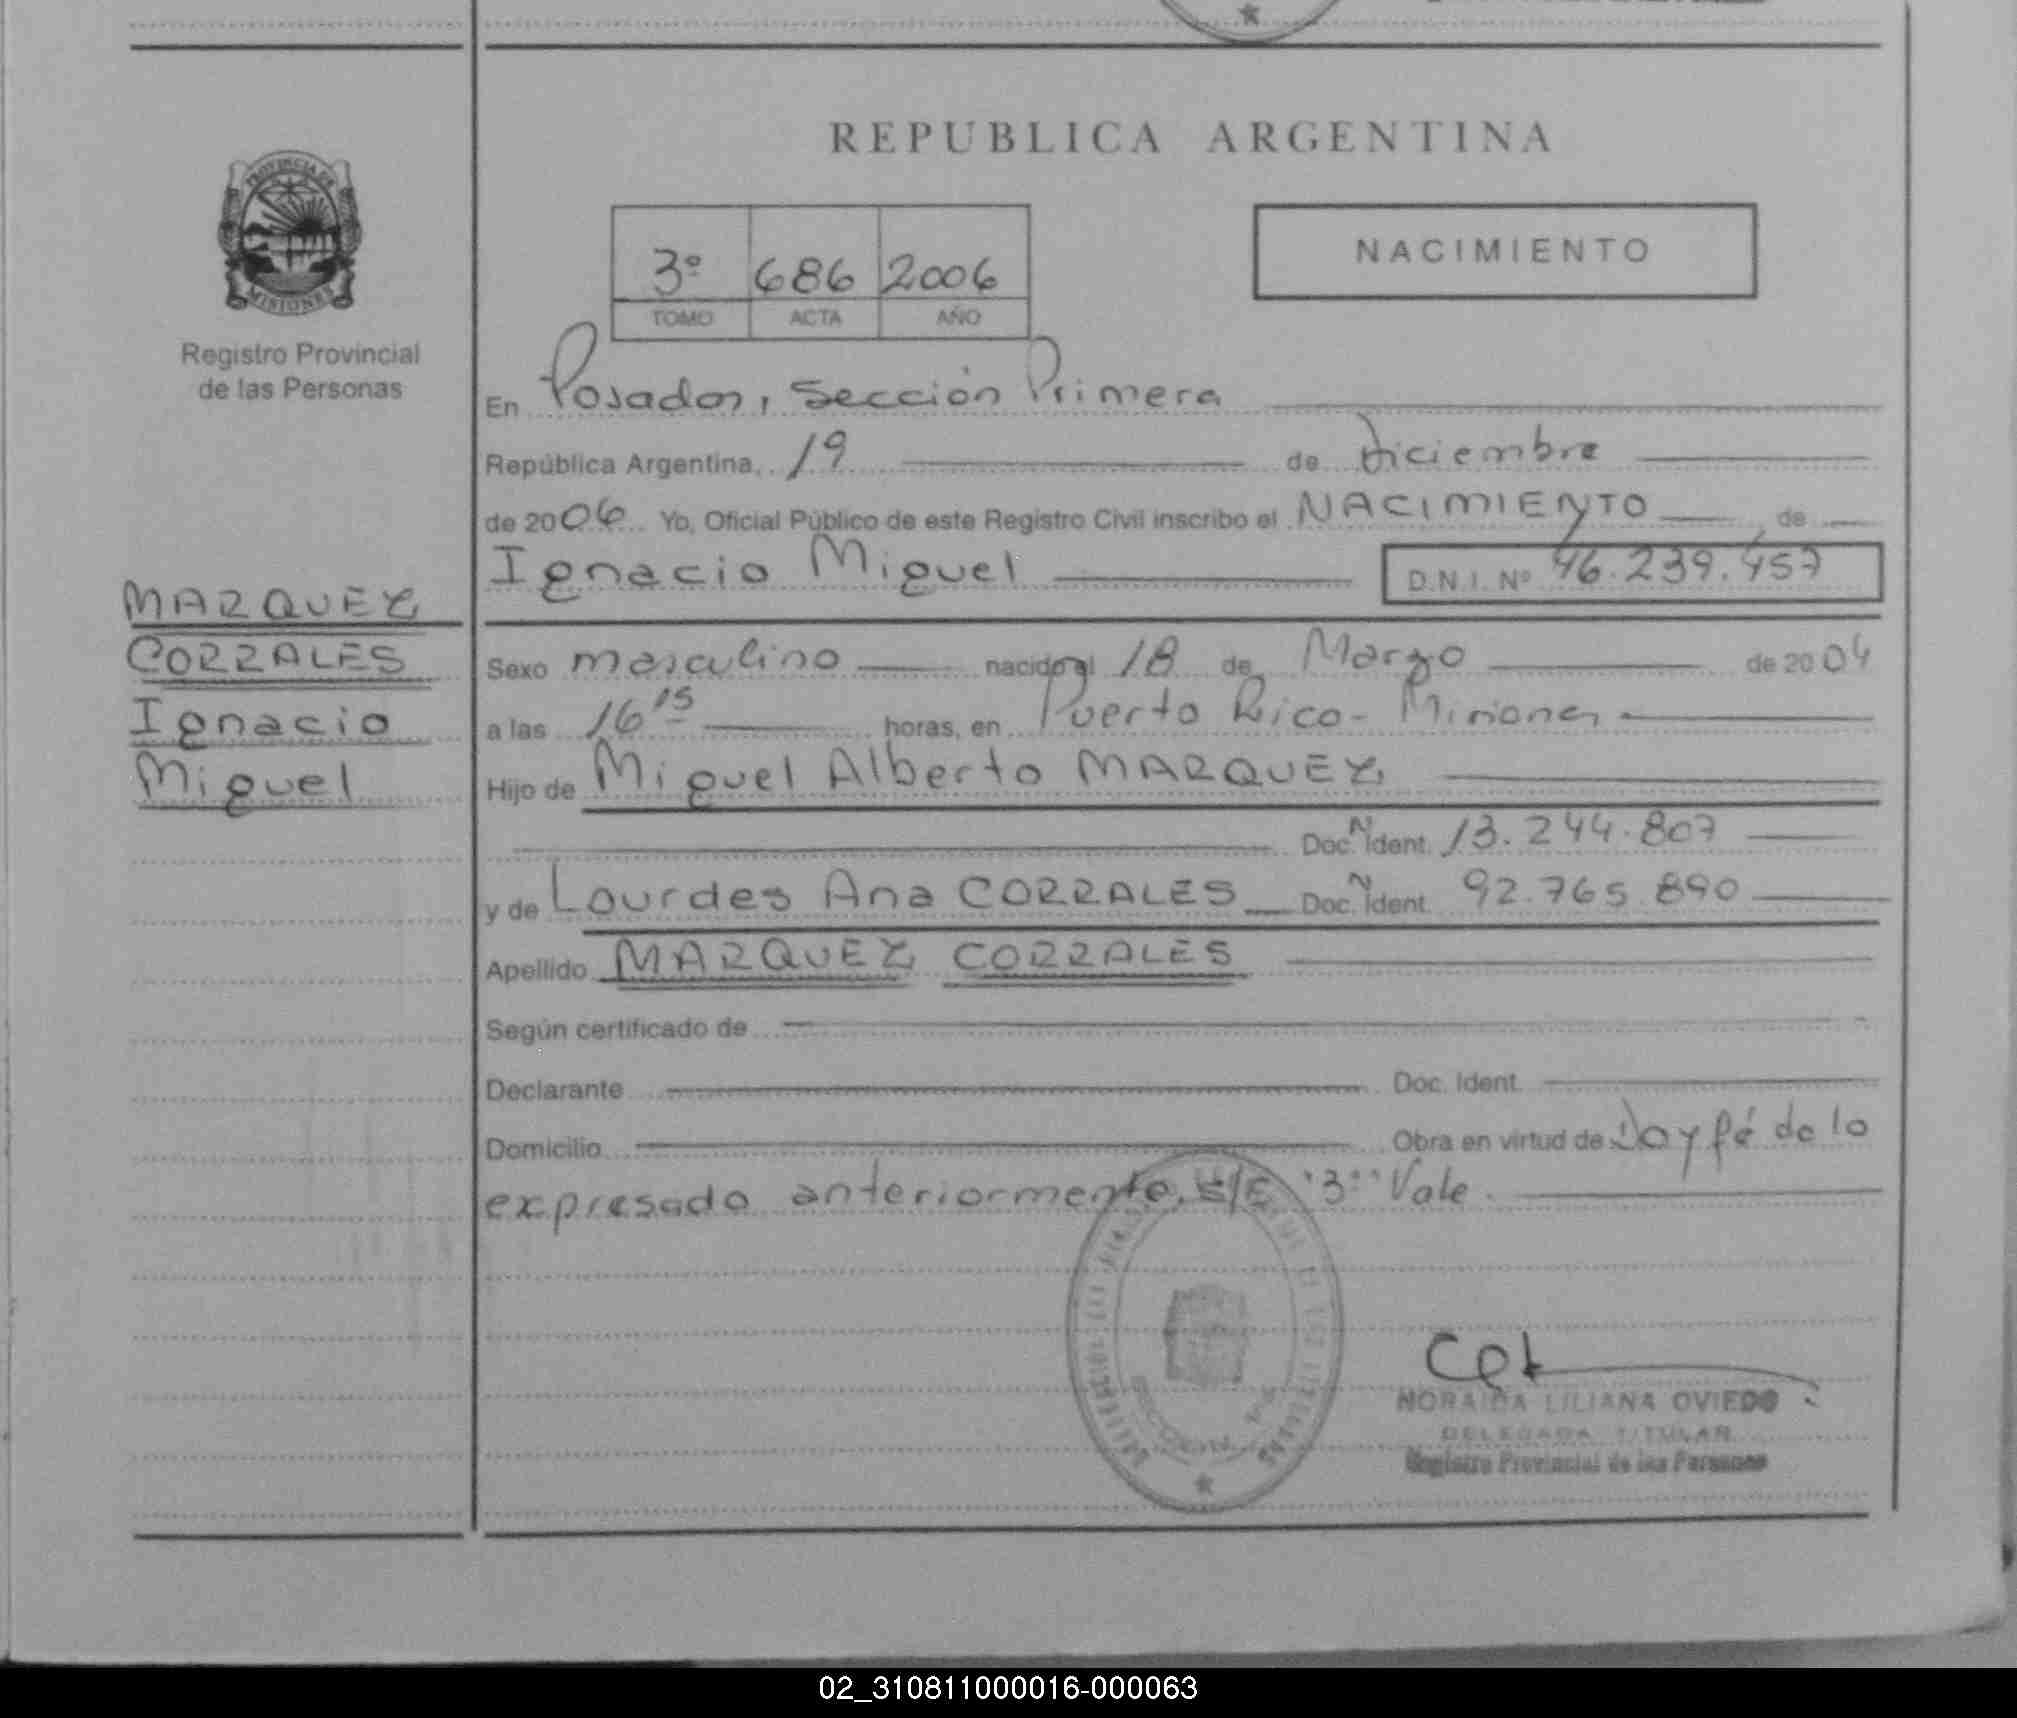 REPUBLICA ARGENTINA
PROVINCIA DE
MISIONES
Registro Provincial
de las Personas
NACIMIENTO
3º 686 2006
TOMO ACTA AÑO
En Posadas, Sección Primera
República Argentina, 19 de Diciembre
de 2006 Yo, Oficial Público de este Registro Civil inscribo el NACIMIENTO de
Ignacio Miguel D.N.I. Nº 46.239.457
MARQUEZ
CORRALES
Ignacio
Miguel
Sexo masculino nacido el 18 de Marzo de 2004
a las 16 15 horas, en Puerto Rico - Misiones
Hijo de Miguel Alberto MARQUEZ
Doc. N Ident. 13.244.807
y de Lourdes Ana CORRALES Doc. N Ident. 92.765.890
Apellido MARQUEZ CORRALES
Según certificado de
Declarante Doc. Ident.
Domicilio Obra en virtud de Doy fé de lo
expresado anteriormente. S/E "3º" Vale.
SECCION
NORAIDA LILIANA OVIEDO
DELEGADA TITULAR
Registro Provincial de las Personas
02_310811000016-000063